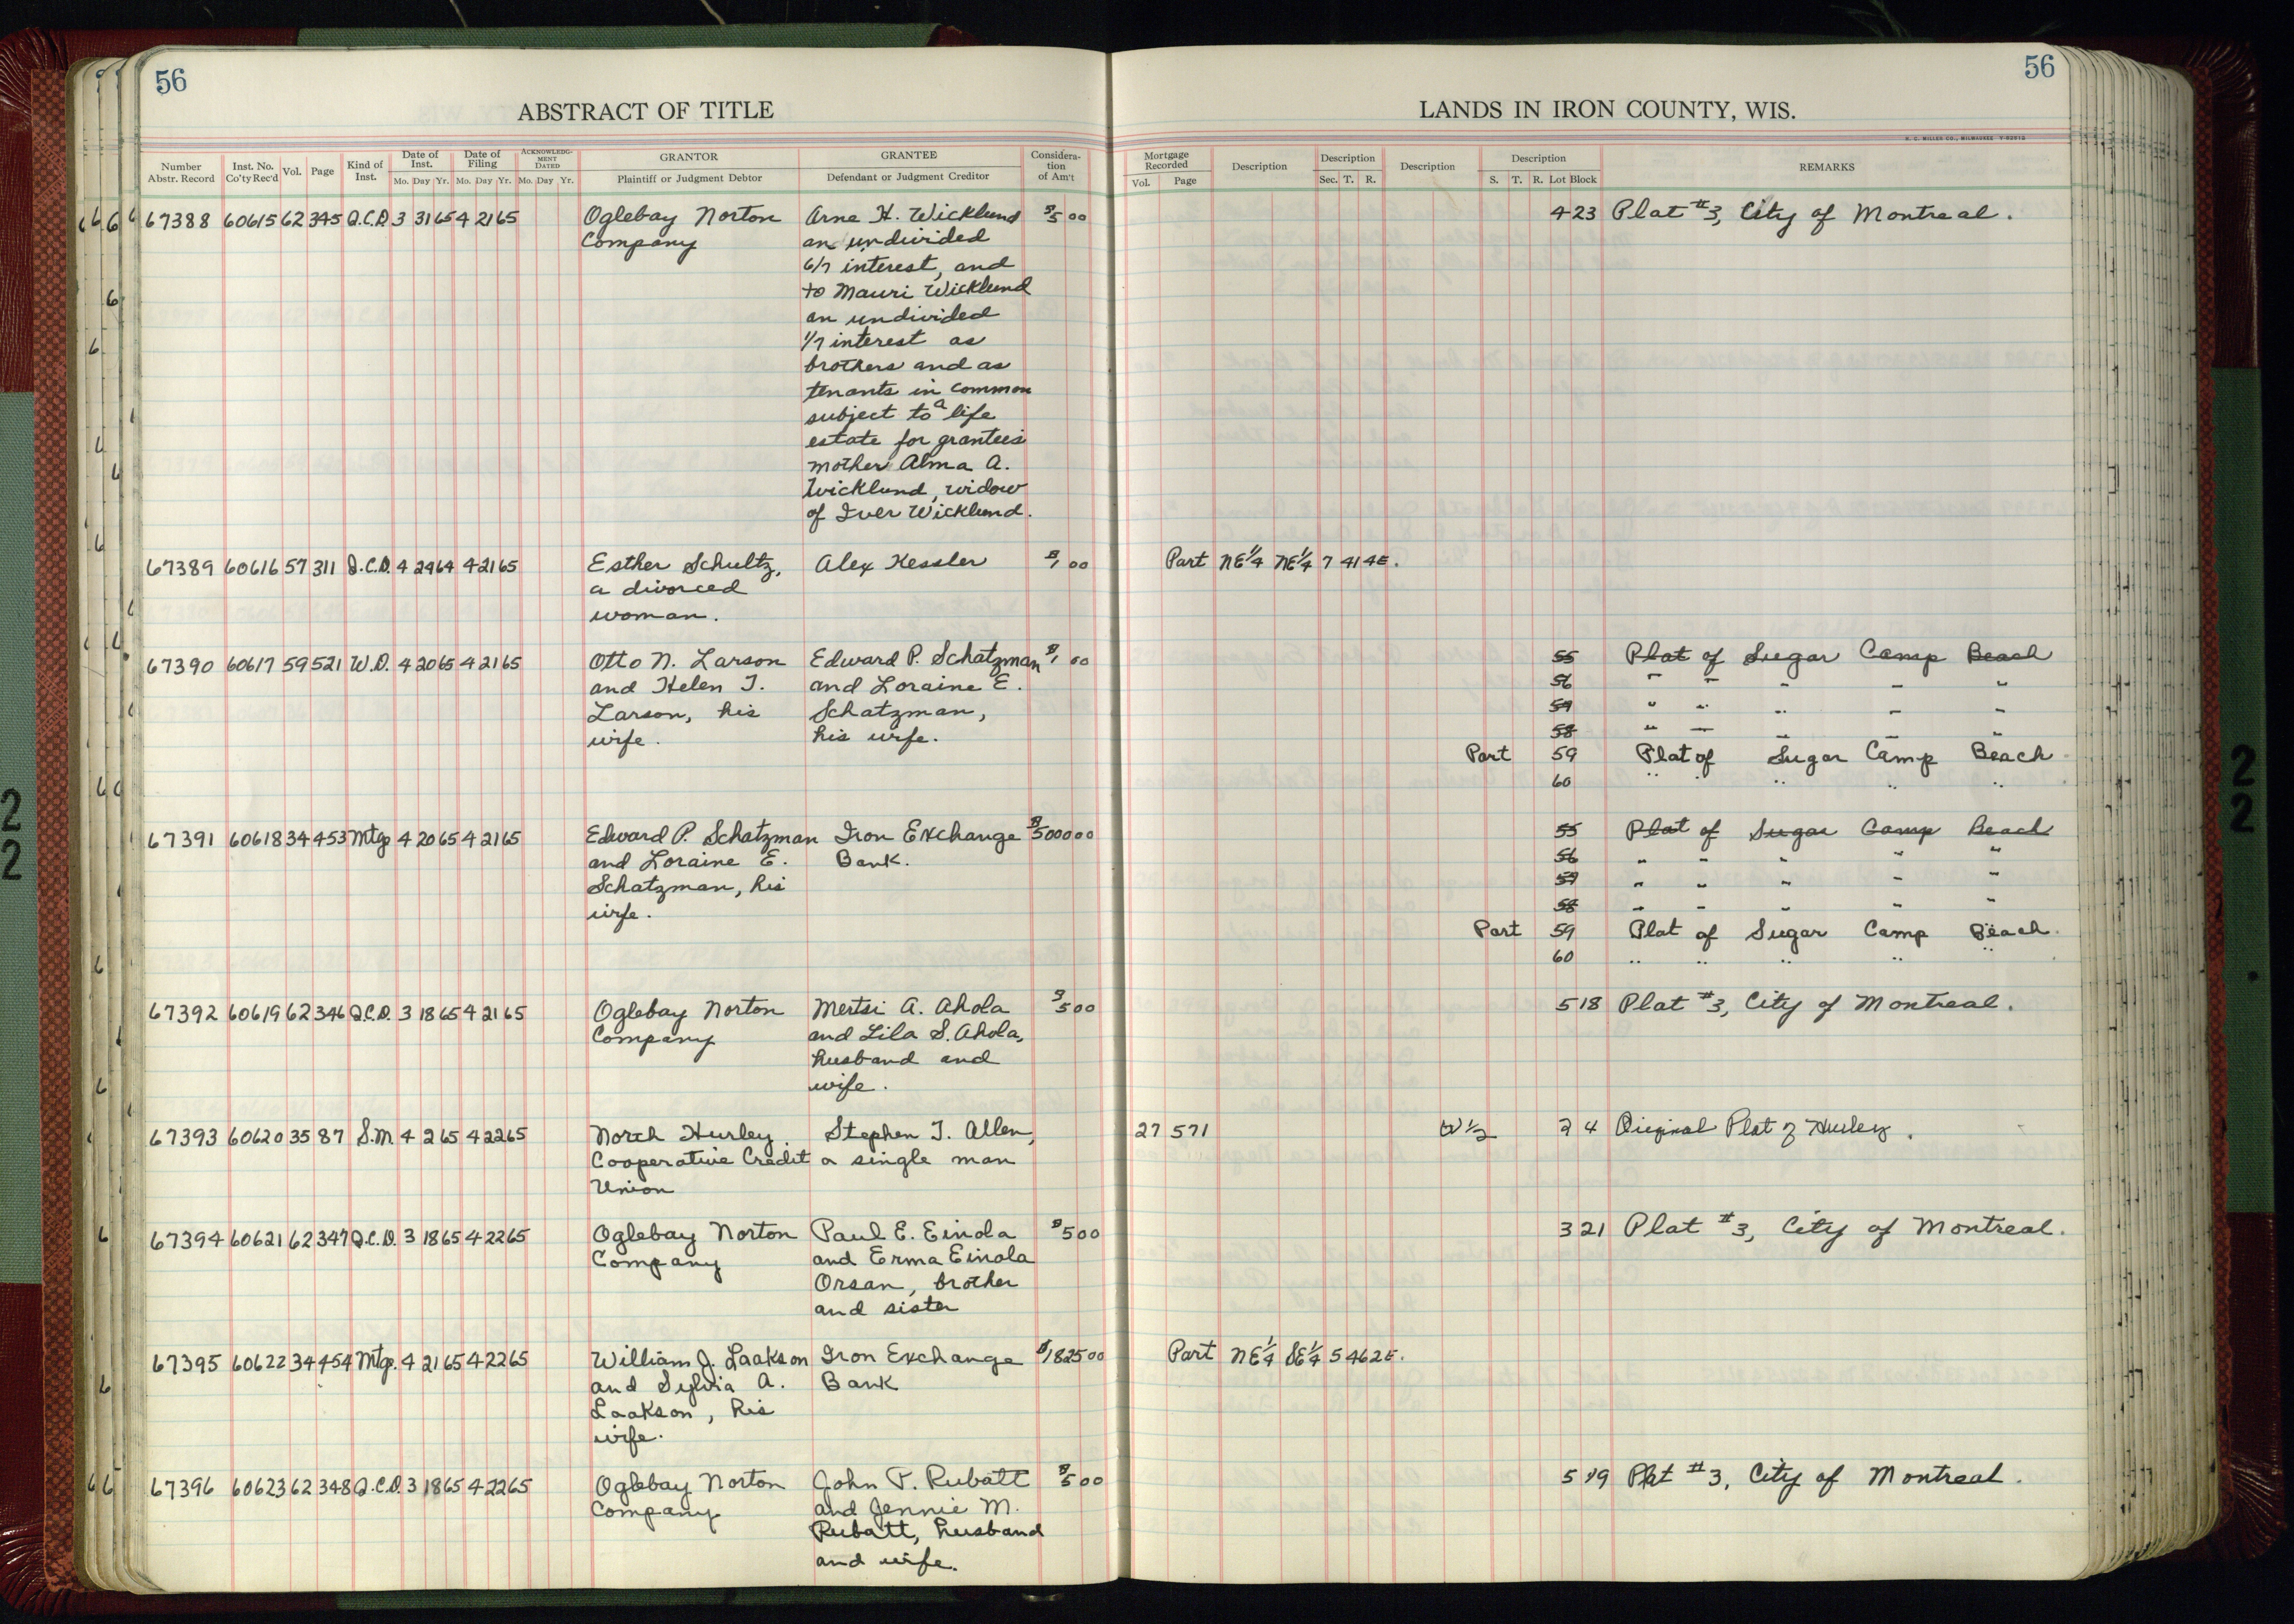 56
56
ABSTRACT OF TITLE
LANDS IN IRON COUNTY, WIS.
H. C. MILLER CO., MILWAUKEE
Number Abstr. Record Inst. No. Co'ty Rec'd Vol. Page Kind of Inst. Date of Inst. Mo. Day Yr. Date of Filing Mo. Day Yr. ACKNOWLEDGMENT DATED Mo. Day Yr. GRANTOR Plaintiff or Judgment Debtor GRANTEE Defendant or Judgment Creditor Considera-tion of Am't Mortgage Recorded Vol. Page Description Description Sec. T. R. Description Description S. T. R. Lot Block REMARKS
67388 60615 62 345 Q.C.D. 3 31 65 4 21 65 Oglebay Norton Arne H. Wicklund $5 00 4 23 Plat #3, City of Montreal.
Company an undivided
6/7 interest, and
to Mauri Wicklund
an undivided
1/7 interest as
brothers and as
tenants in common
subject to a life
estate for grantees
mother Alma A.
Wicklund, widow
of Iver Wicklund.
67389 60616 57 311 Q.C.D. 4 24 64 4 21 65 Esther Schultz, Alex Kessler $1 00 Part NE 1/4 NE 1/4 7 41 4E.
a divorced
woman.
67390 60617 59 521 W.D. 4 20 65 4 21 65 Otto N. Larson Edward P. Schatzman $1 00 55 Plat of Sugar Camp Beach
and Helen T. and Loraine E. 56 " " " " "
Larson, his Schatzman, 57 " " " " "
wife. his wife. 58 " " " " "
Part 59 Plat of Sugar Camp Beach
60 " " " " "
67391 60618 34 453 Mtg. 4 20 65 4 21 65 Edward P. Schatzman Iron Exchange $5000 00 55 Plat of Sugar Camp Beach
and Loraine E. Bank. 56 " " " " "
Schatzman, his 57 " " " " "
wife. 58 " " " " "
Part 59 Plat of Sugar Camp Beach.
60 " " " " "
67392 60619 62 346 Q.C.D. 3 18 65 4 21 65 Oglebay Norton Mertsi A. Ahola $5 00 5 18 Plat #3, City of Montreal.
Company and Lila S. Ahola,
husband and
wife.
67393 60620 35 87 S.M. 4 2 65 4 22 65 North Hurley Stephen T. Allen, 27 571 W 1/2 4 Original Plat of Hurley.
Cooperative Credit a single man
Union
67394 60621 62 347 Q.C.D. 3 18 65 4 22 65 Oglebay Norton Paul E. Einola $5 00 3 21 Plat #3, City of Montreal.
Company and Erma Einola
Orsan, brother
and sister
67395 60622 34 454 Mtg. 4 21 65 4 22 65 William J. Laakson Iron Exchange $1825 00 Part NE 1/4 SE 1/4 5 46 2E.
and Sylvia A. Bank
Laakson, his
wife.
67396 60623 62 348 Q.C.D. 3 18 65 4 22 65 Oglebay Norton John P. Rubatt $5 00 5 19 Plat #3, City of Montreal.
Company and Jennie M.
Rubatt, husband
and wife.